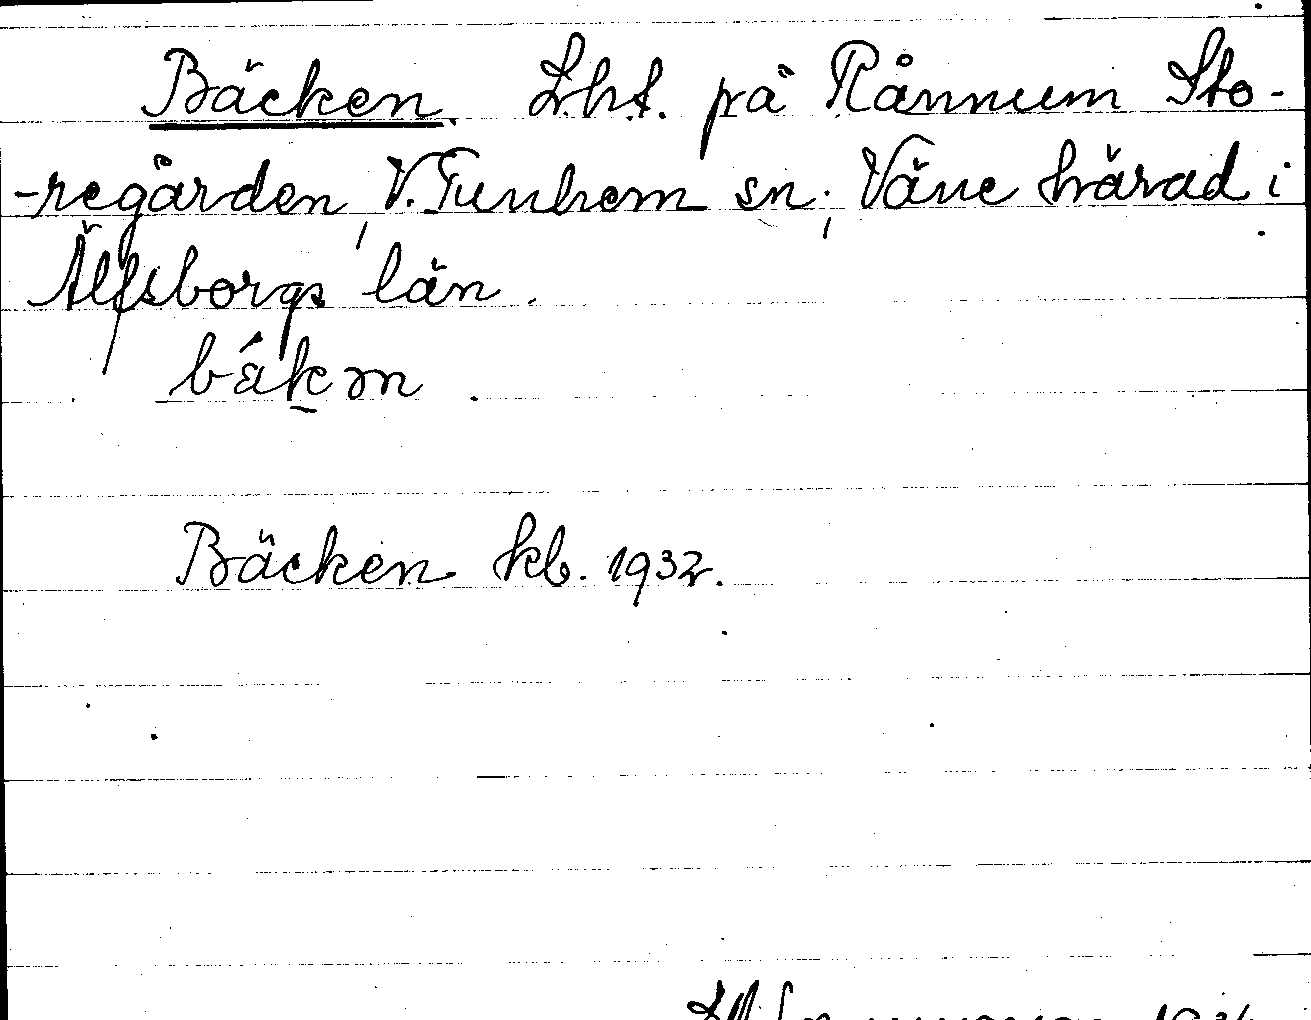 Bäcken. Lht. på Rånnum Sto-
-regården, V. Tunhem sn; Väne härad i
Älfsborgs län.
bákm.
Bäcken kb. 1932.